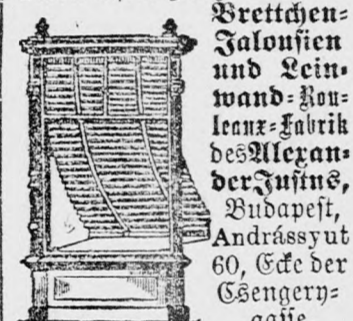 Brettchen-
Jalousien
und Lein-
wand-Rou-
leaux-Fabrik
des Alexan-
der Justus,
Budapest,
Andrássyut
60, Ecke der
Csengery-
gasse